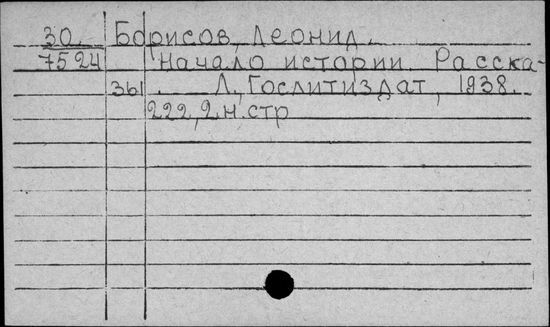 30. Борисов, Леонид.
7524 Начало истории. Расска-
361 . Л., Гослитиздат, 1938.
222, 2 н. стр